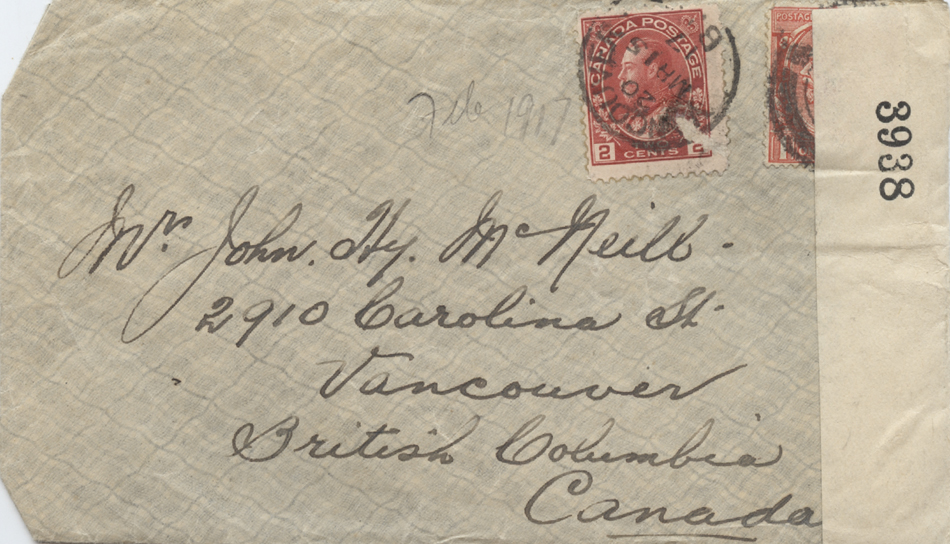 CANADA POSTAGE
2 CENTS
POSTAG
3938
Feb 1917
Mrs. John. Hy. McNeill.
2910 Carolina St.
Vancouver
British Columbia
Canada